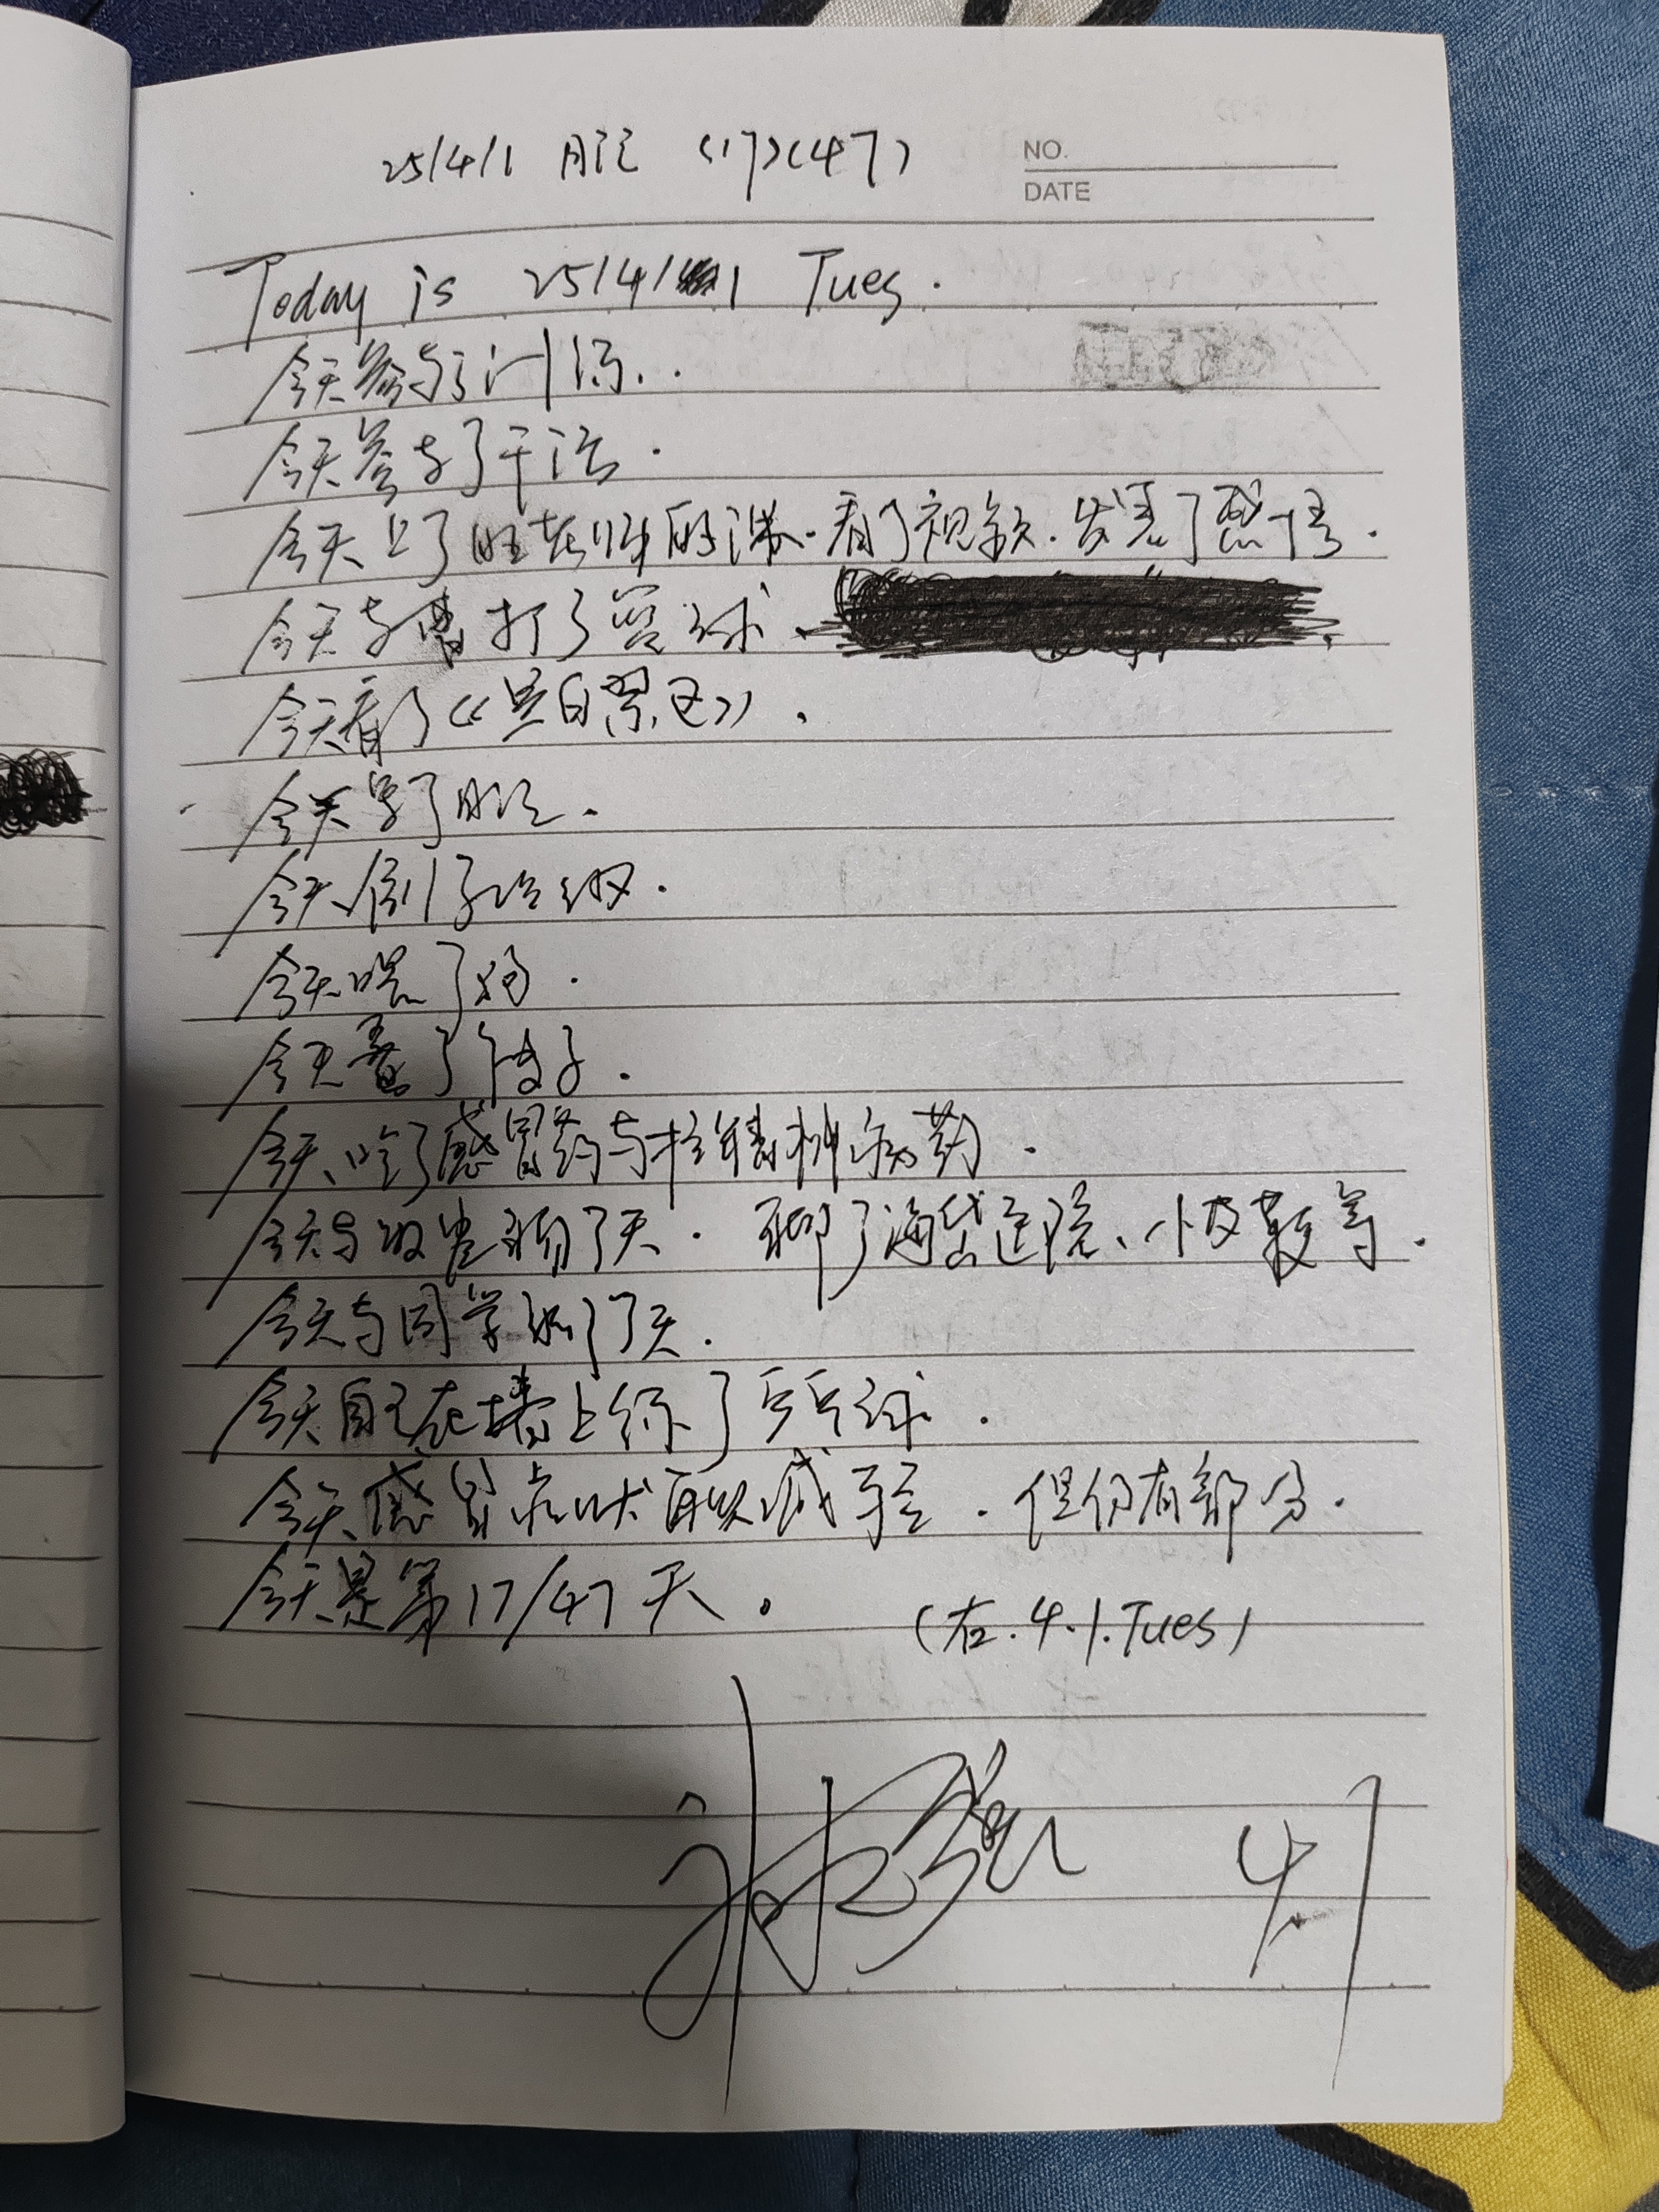 25/4/1 日记 (17)(47)
NO.
DATE
Today is 25/4/1 Tues.
今天参与了训练..
今天参与了干活.
今天上了 老师的课.看了视频.发表了感悟.
今天与曹打了篮球.
今天看了《 》.
今天写了日记.
今天倒了垃圾.
今天喂了狗.
今天叠了被子.
今天吃了感冒药与抗精神病药.
今天与 聊了天.聊了海 、小 等.
今天与同学聊了天.
今天自己在墙上练了乒乓球.
今天感冒症状 减轻.但仍有部分.
今天是第17/47天。
(右.4.1.Tues)
4.1